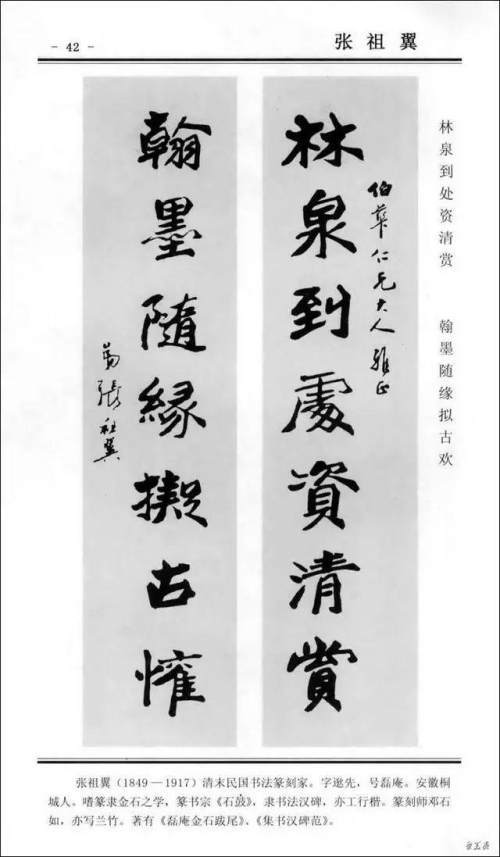 - 42 -
张祖翼
林泉到处资清赏　翰墨随缘拟古欢
林泉到處資清賞
伯華仁兄大人雅正
翰墨隨緣擬古懽
弟張祖翼
张祖翼（1849—1917）清末民国书法篆刻家。字逖先，号磊庵。安徽桐
城人。嗜篆隶金石之学，篆书宗《石鼓》，隶书法汉碑，亦工行楷。篆刻师邓石
如，亦写兰竹。著有《磊庵金石跋尾》、《集书汉碑范》。